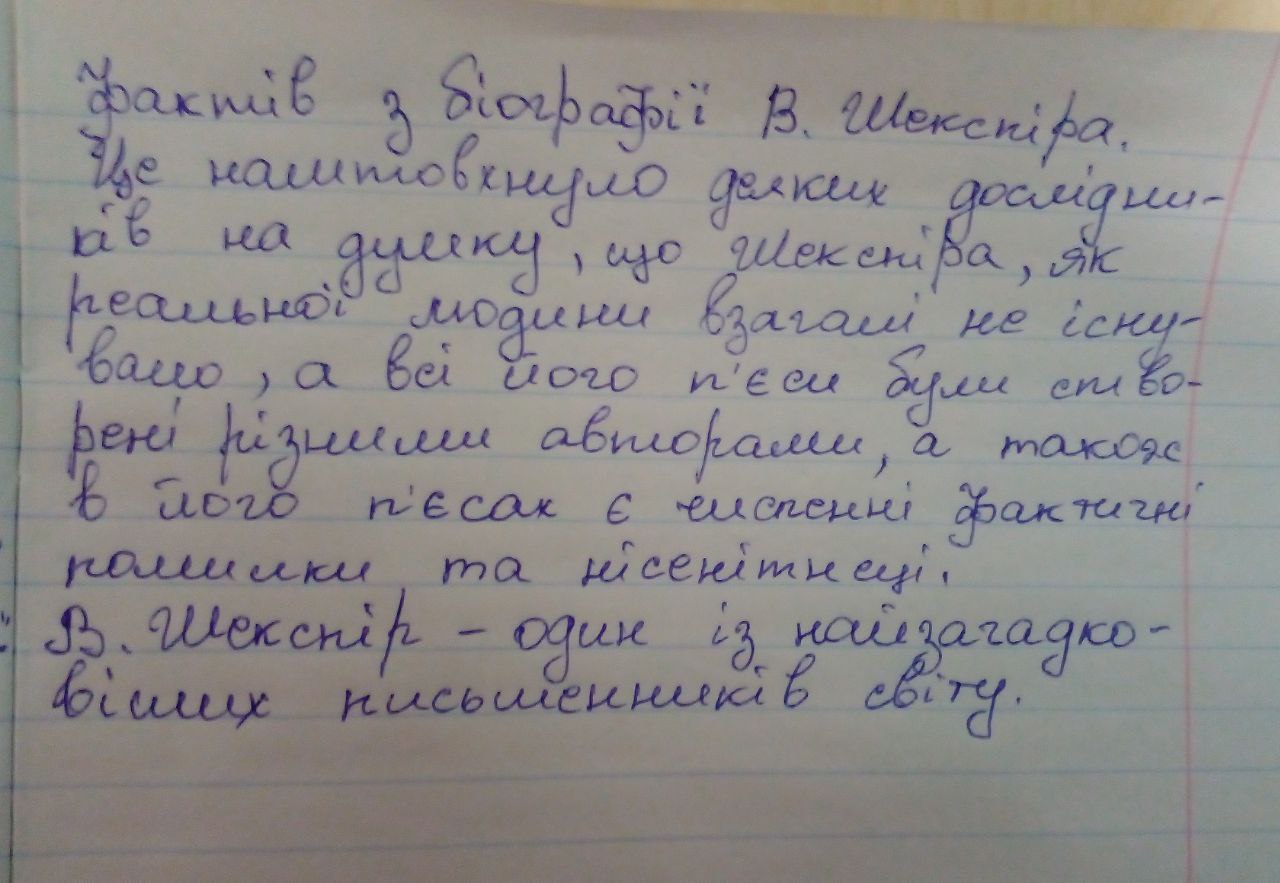 фактів з біографії В. Шекспіра.
Це наштовхнуло деяких дослідни-
ків на думку, що Шекспіра, як
реальної людини взагалі не існу-
вало, а всі його п'єси були ство-
рені різними авторами, а також
в його п'єсах є численні фактичні
помилки та нісенітнеці.
В. Шекспір - один із найзагадко-
віших письменників світу.